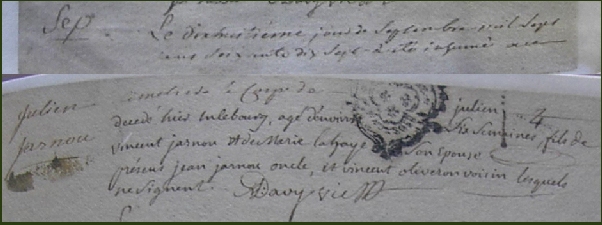 Sep.
Le dixhuitième jour de Septembre mil Sept
cens soixante dix Sept a été inhumé au
julien
jarnou
cimetiere le Corps de julien
decedé hier au bourg, agé d'environ six Semaines, fils de
vincent jarnou et de Marie la Son Epouse
présens jean jarnou oncle, et vincent oliveron voisin lesquels
ne signent.
4